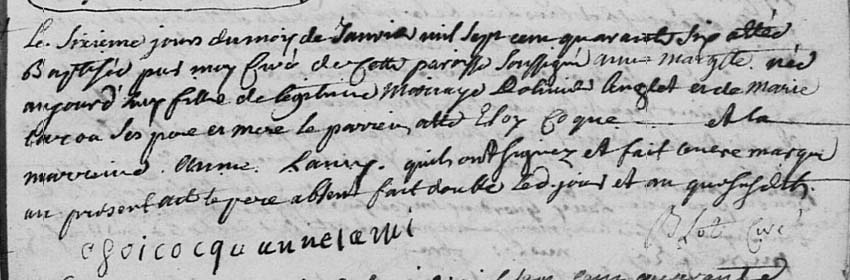 Le Sixieme jours du moy de Janvier mil sept cent quarante six atté
Baptisée par moy Curé de cette paroisse soussigné anne margte née
aujourd'huy fille de legitime Mariage Anglet et de Marie
ses pere et mere le parrein atté Eloy Coque et la
marreine Anne Lanny quil ont signez et fait leure marque
au present act le pere absent fait double led. jours et an que susdits
eloi cocqu anne la mi
Curé